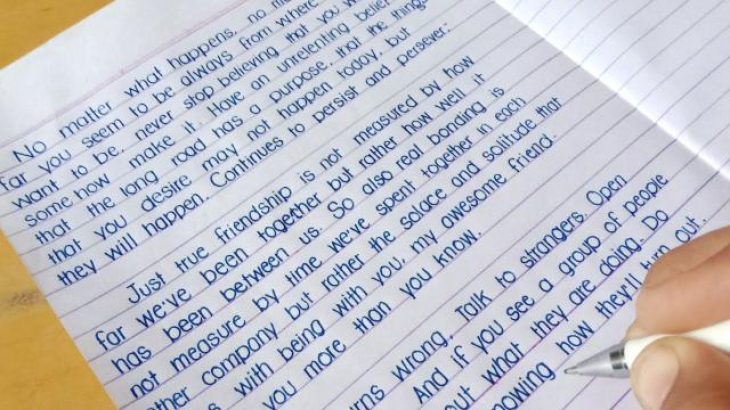 No matter what happens, no
far you seem to be always from where
want to be, never stop believing that you
some how make it. Have an unrelenting belief
that the long road has a purpose, that the things
that you desire may not happen today, but
they will happen. Continues to persist and persever-
Just true friendship is not measured by how
far we've been together but rather how well it
has been between us. So also real bonding is
not measure by time we've spent together in each
other company but rather the solace and solitude that
with being with you, my awesome friend.
you more than you know.
wrong. Talk to strangers. Open
And if you see a group of people
out what they are doing. Do
how they'll turn out.